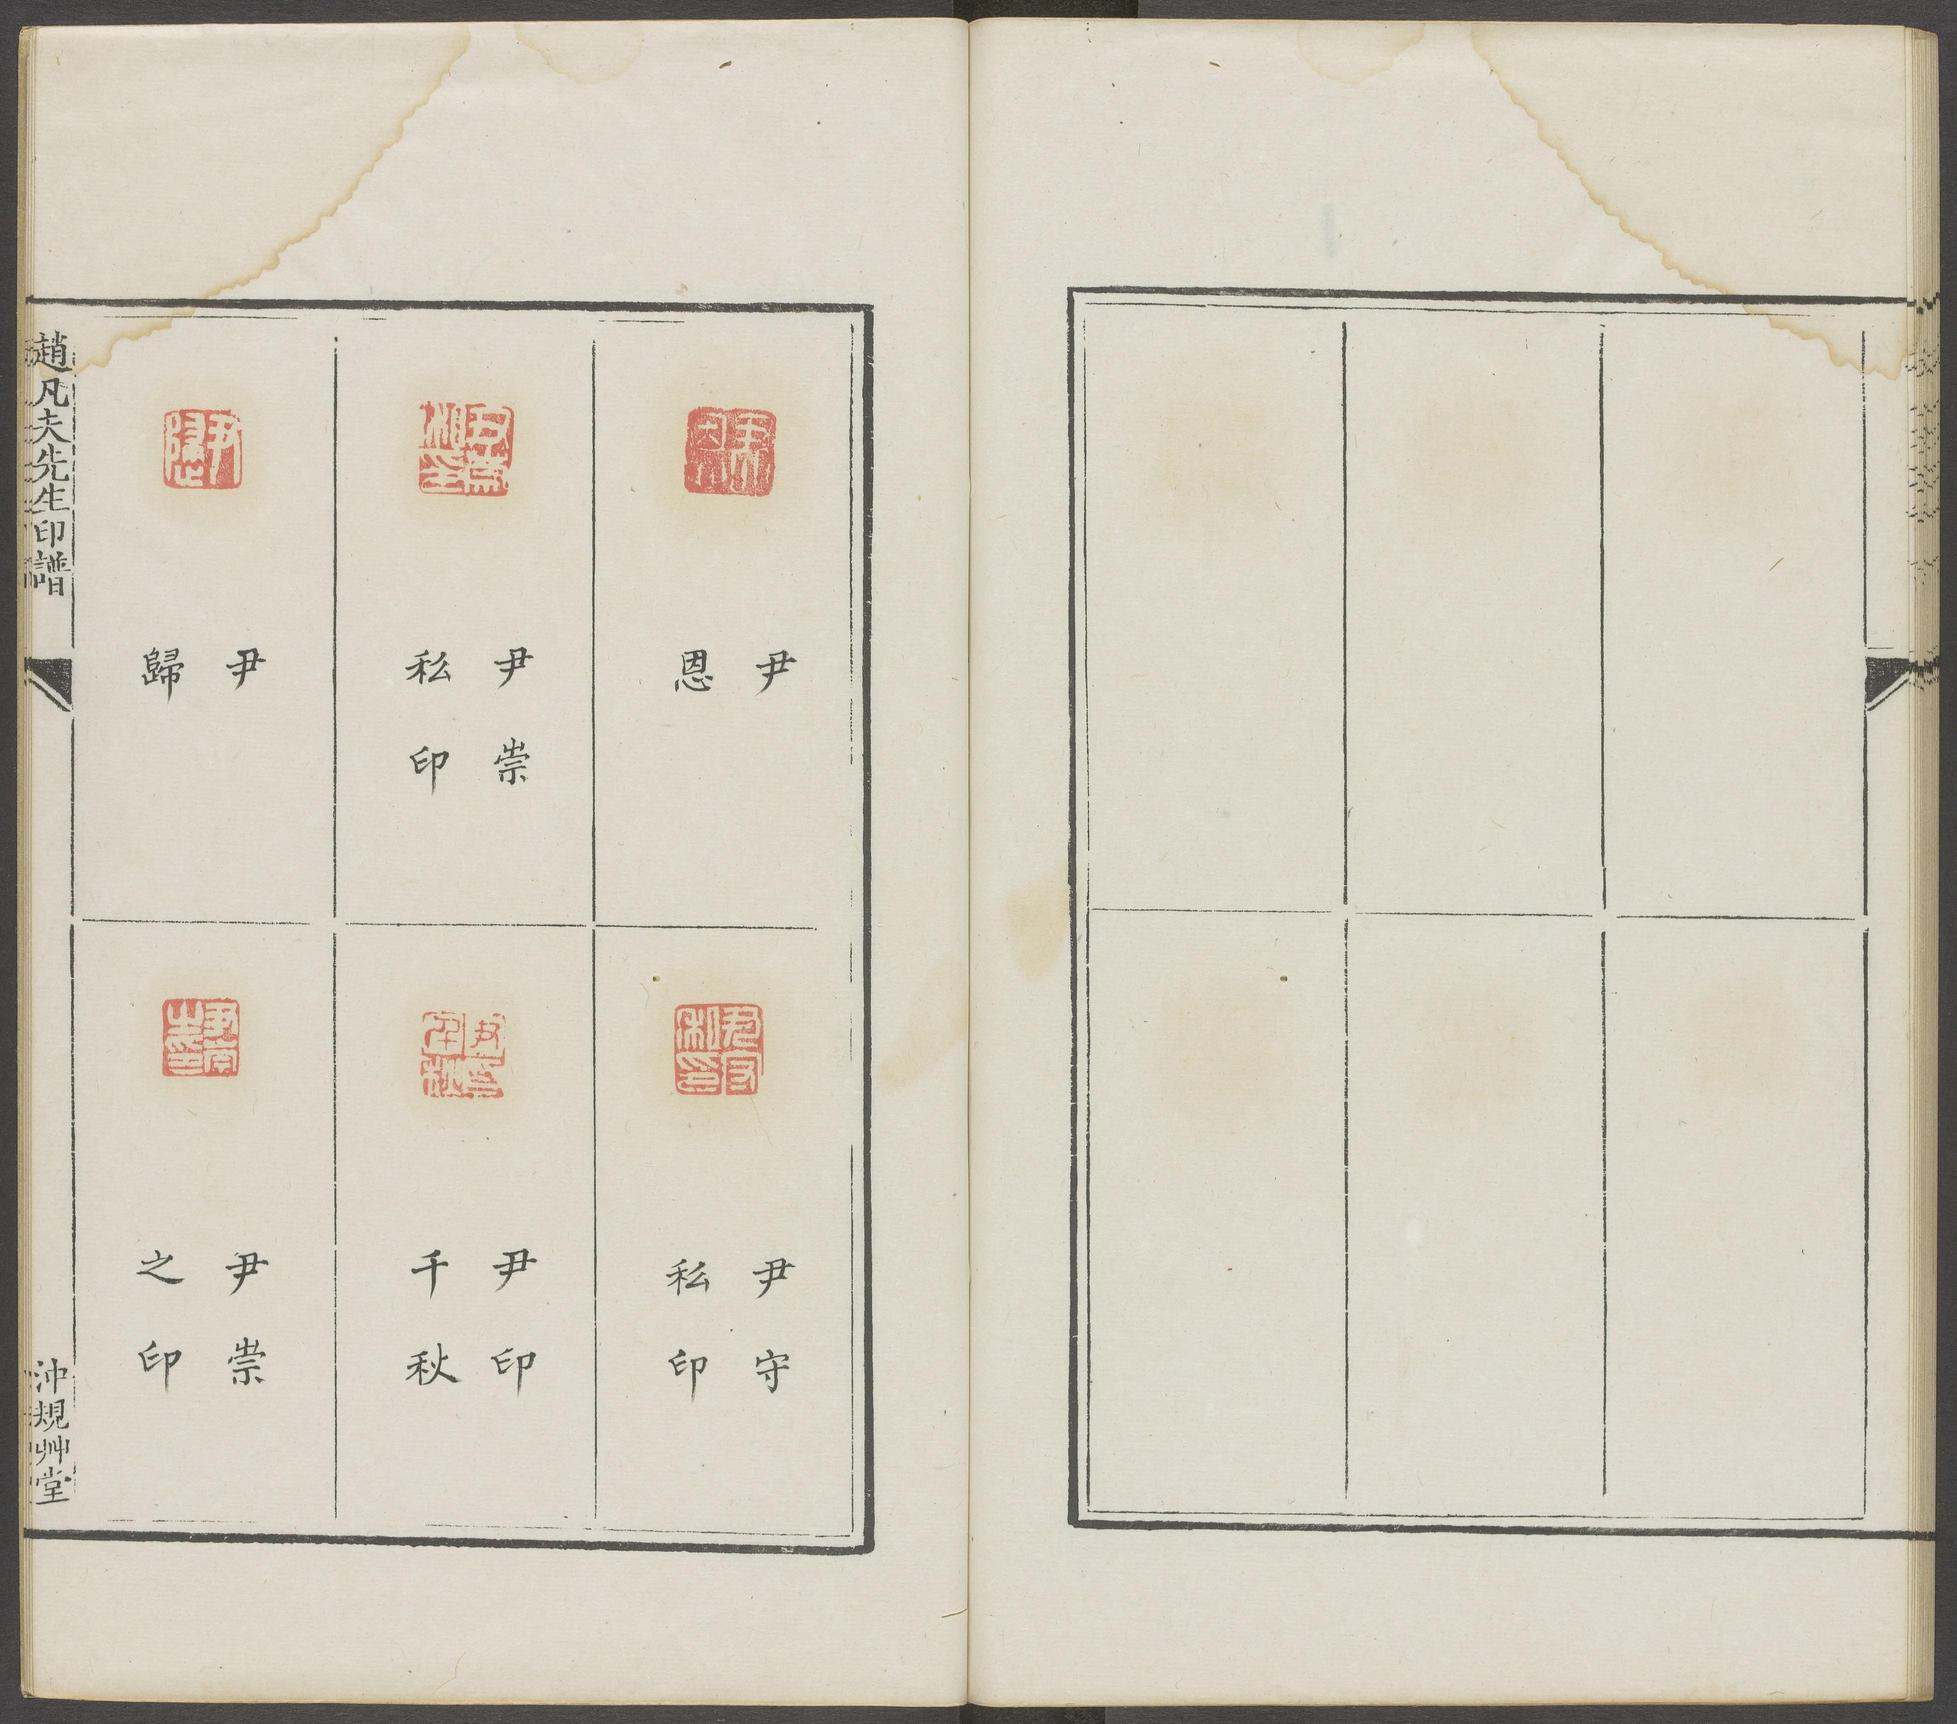 尹恩
尹崇
私印
尹歸
尹守
私印
尹印
千秋
尹崇
之印
趙凡夫先生印譜
沖規艸堂